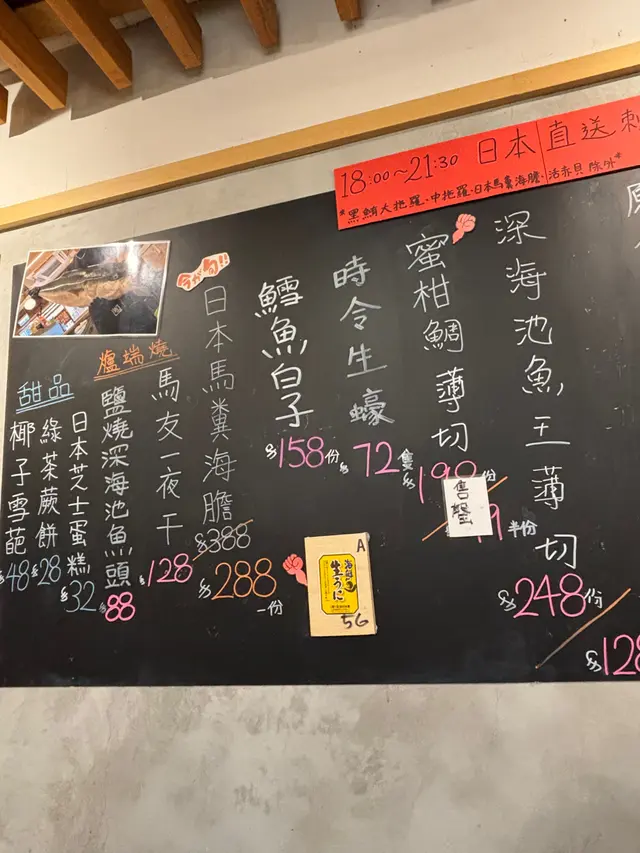 18:00~21:30 日本直送刺
*黑鮪大拖羅、中拖羅、日本馬糞海膽、活赤貝 除外*
深海池魚王薄切
$248份
$128
蜜柑鯛薄切
$198份
半份
售罄
時令生蠔
$72隻
鱈魚白子
$158份
今が旬!!
日本馬糞海膽
$388
$288
一份
A
生うに
56
爐端燒
馬友一夜干
$128
鹽燒深海池魚頭
$88
甜品
日本芝士蛋糕
$32
綠茶蕨餅
$28
椰子雪葩
$48